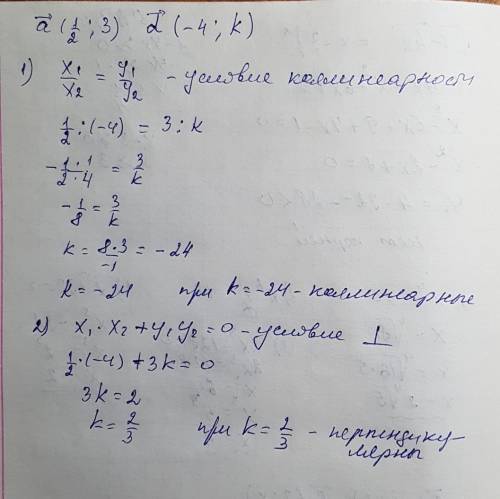 a⃗ (1/2 ; 3) d⃗ (-4 ; k)
1) x₁/x₂ = y₁/y₂ - условие коллинеарности
1/2 : (-4) = 3 : k
- 1·1/2·4 = 3/k
- 1/8 = 3/k
k = 8·3/-1 = -24
k = -24 при k = -24 - коллинеарные
2) x₁·x₂ + y₁y₂ = 0 - условие ⊥
1/2·(-4) + 3k = 0
3k = 2
k = 2/3 при k = 2/3 - перпендику-
лярны